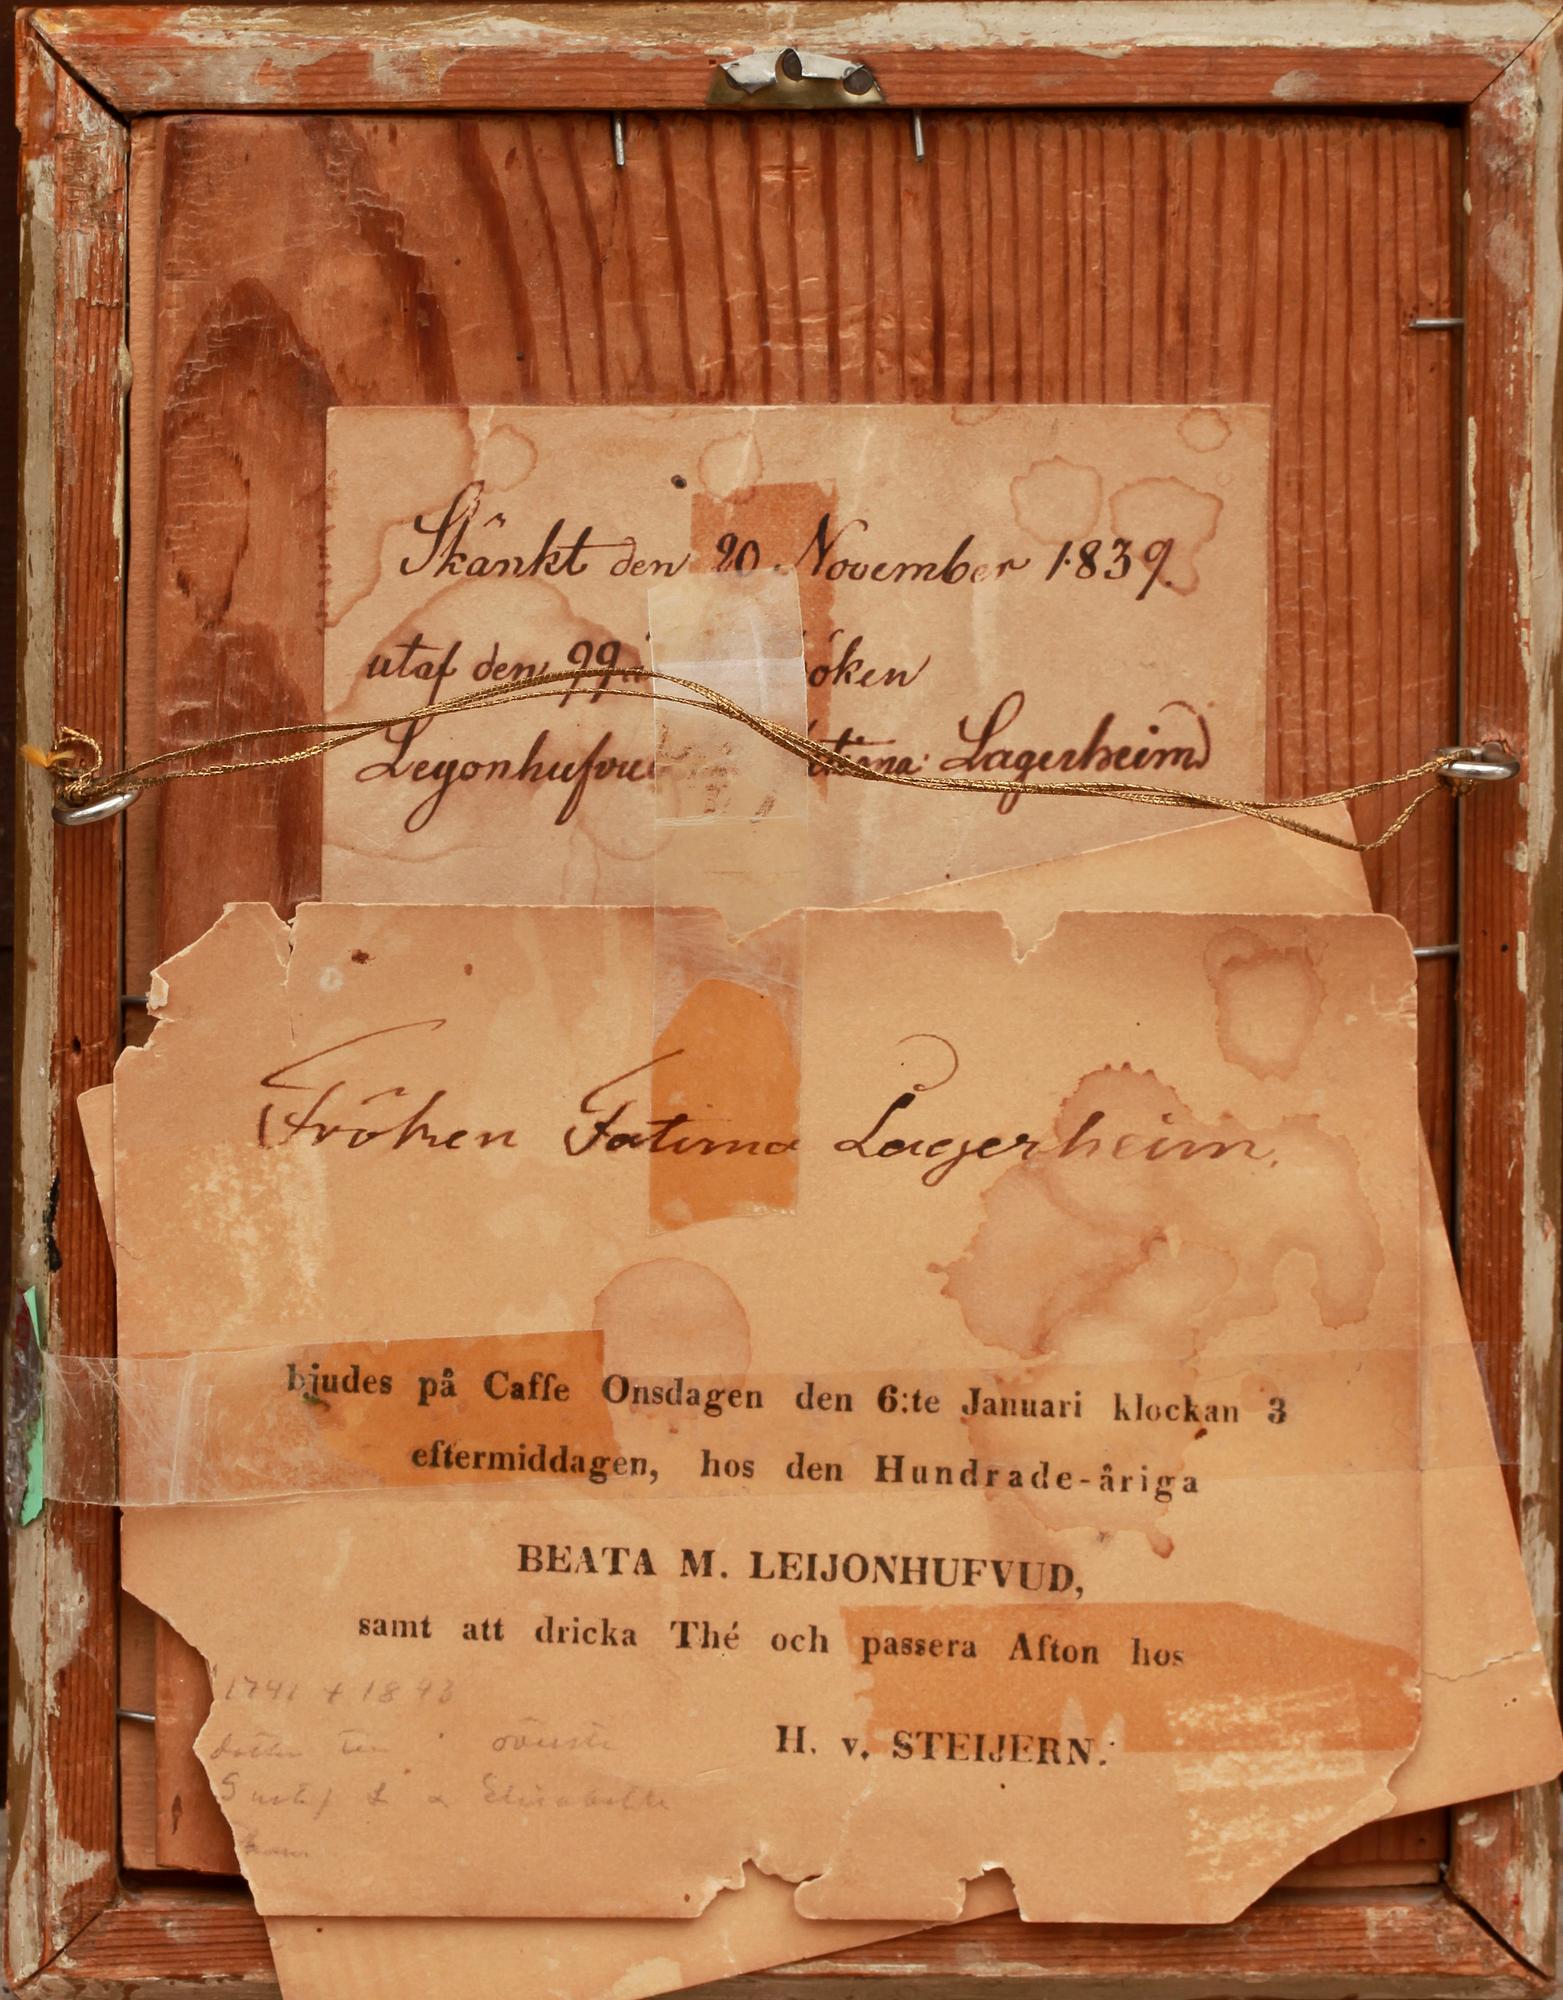 Skänkt den 20 November 1839.
utaf den 99
Lagerheim
Fröken Fatima Lagerheim.
bjudes på Caffe Onsdagen den 6:te Januari klockan 3
eftermiddagen, hos den Hundrade-åriga
BEATA M. LEIJONHUFVUD,
samt att dricka Thé och passera Afton hos
H. v. STEIJERN.
1741 + 1843
dotter
Gustaf L